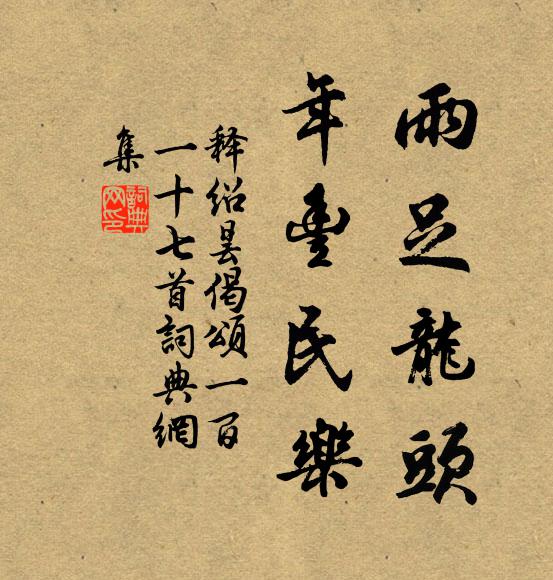 雨足龍頭
年豐民樂
释绍昙偈頌一百
一十七首詞典網
集
詞典网印